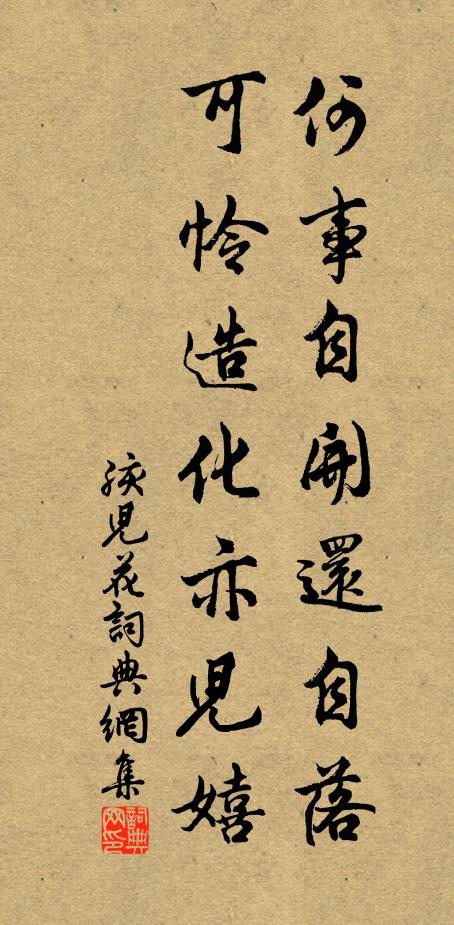 何事自開還自落
可怜造化亦児嬉
孩児花詞典網集
詞典
网印